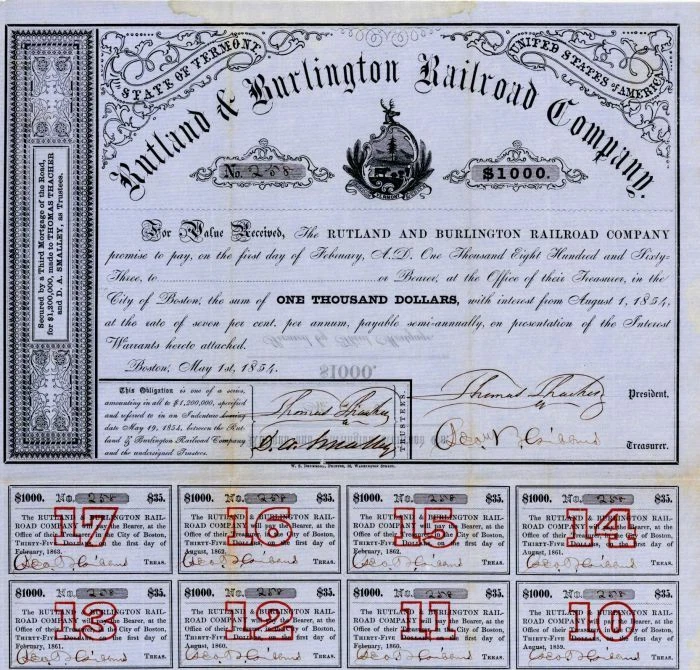 STATE OF VERMONT.
UNITED STATES OF AMERICA
Rutland & Burlington Railroad Company.
No. 258
$1000.
Secured by a Third Mortgage of the Road,
for $1,200,000, made to THOMAS THACHER
and D. A. SMALLEY, as Trustees.
For Value Received, The RUTLAND AND BURLINGTON RAILROAD COMPANY
promise to pay, on the first day of February, A.D. One Thousand Eight Hundred and Sixty-
Three, to or Bearer, at the Office of their Treasurer, in the
City of Boston, the sum of ONE THOUSAND DOLLARS, with interest from August 1, 1854,
at the rate of seven per cent. per annum, payable semi-annually, on presentation of the Interest
Warrants hereto attached.
Boston, May 1st, 1854.
This Obligation is one of a series,
amounting in all to $1,200,000, specified
and referred to in an Indenture bearing
date May 19, 1854, between the Rut-
land & Burlington Railroad Company
and the undersigned Trustees.
Thomas Thacher
D. A. Smalley
TRUSTEES.
Thomas Thacher President.
Treasurer.
PRINTER, WASHINGTON STREET.
$1000. No. 258 $35.
17
The RUTLAND & BURLINGTON RAIL-
ROAD COMPANY will pay the Bearer, at the
Office of their Treasurer, in the City of Boston,
THIRTY-FIVE DOLLARS, on the first day of
February, 1863.
TREAS.
$1000. No. 258 $35.
16
The RUTLAND & BURLINGTON RAIL-
ROAD COMPANY will pay the Bearer, at the
Office of their Treasurer, in the City of Boston,
THIRTY-FIVE DOLLARS, on the first day of
August, 1862.
TREAS.
$1000. No. 258 $35.
15
The RUTLAND & BURLINGTON RAIL-
ROAD COMPANY will pay the Bearer, at the
Office of their Treasurer, in the City of Boston,
THIRTY-FIVE DOLLARS, on the first day of
February, 1862.
TREAS.
$1000. No. 258 $35.
14
The RUTLAND & BURLINGTON RAIL-
ROAD COMPANY will pay the Bearer, at the
Office of their Treasurer, in the City of Boston,
THIRTY-FIVE DOLLARS, on the first day of
August, 1861.
TREAS.
$1000. No. 258 $35.
13
The RUTLAND & BURLINGTON RAIL-
ROAD COMPANY will pay the Bearer, at the
Office of their Treasurer, in the City of Boston,
THIRTY-FIVE DOLLARS, on the first day of
February, 1861.
TREAS.
$1000. No. 258 $35.
12
The RUTLAND & BURLINGTON RAIL-
ROAD COMPANY will pay the Bearer, at the
Office of their Treasurer, in the City of Boston,
THIRTY-FIVE DOLLARS, on the first day of
August, 1860.
TREAS.
$1000. No. 258 $35.
11
The RUTLAND & BURLINGTON RAIL-
ROAD COMPANY will pay the Bearer, at the
Office of their Treasurer, in the City of Boston,
THIRTY-FIVE DOLLARS, on the first day of
February, 1860.
TREAS.
$1000. No. 258 $35.
10
The RUTLAND & BURLINGTON RAIL-
ROAD COMPANY will pay the Bearer, at the
Office of their Treasurer, in the City of Boston,
THIRTY-FIVE DOLLARS, on the first day of
August, 1859.
TREAS.